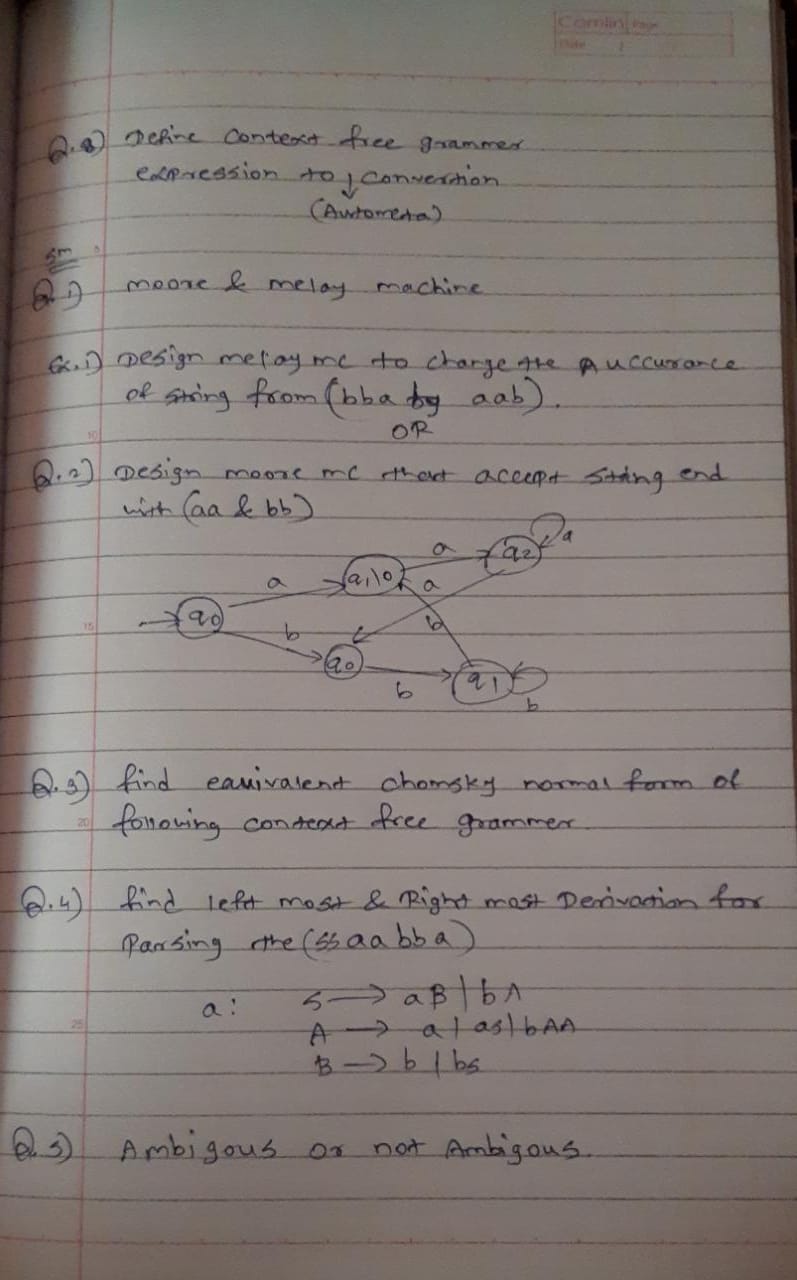 Camlin Page
Date /
Q.8) Define Context free grammer
expression to ↓ convertion
(Autometa)
5m
Q.1) moore & melay machine
Ex.1) Design melay mc to change the Auccurance
of string from (bba by aab).
OR
Q.2) Design moore mc that accept string end
with (aa & bb)
a q2 a
a q1/0 a
q0
b b
q0 b q1 b
Q.3) find equivalent chomsky normal form of
following context free grammer
Q.4) find left most & Right most Derivation for
Parsing the (ssaabba)
a: S → aB | bA
A → a | as | bAA
B → b | bs
Q.5) Ambigous or not Ambigous.